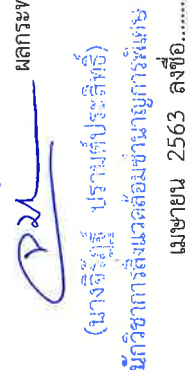 ผลกระท
(นางจิระภูรี ปราบศัประสิทธิ์)
นักวิชาการสิ่งแวดล้อมชำนาญการพิเศษ
เมษายน 2563 ลงชื่อ..........